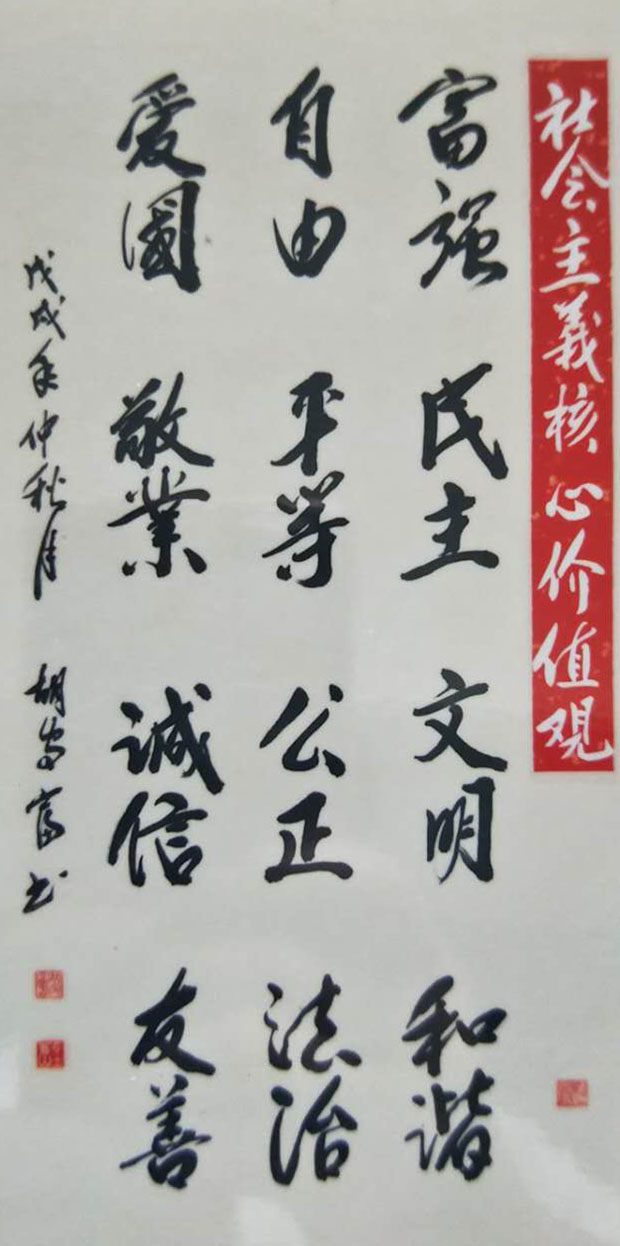 社会主義核心价值观
富强 民主 文明 和谐
自由 平等 公正 法治
爱國 敬業 诚信 友善
戊戌年仲秋月 胡安富书